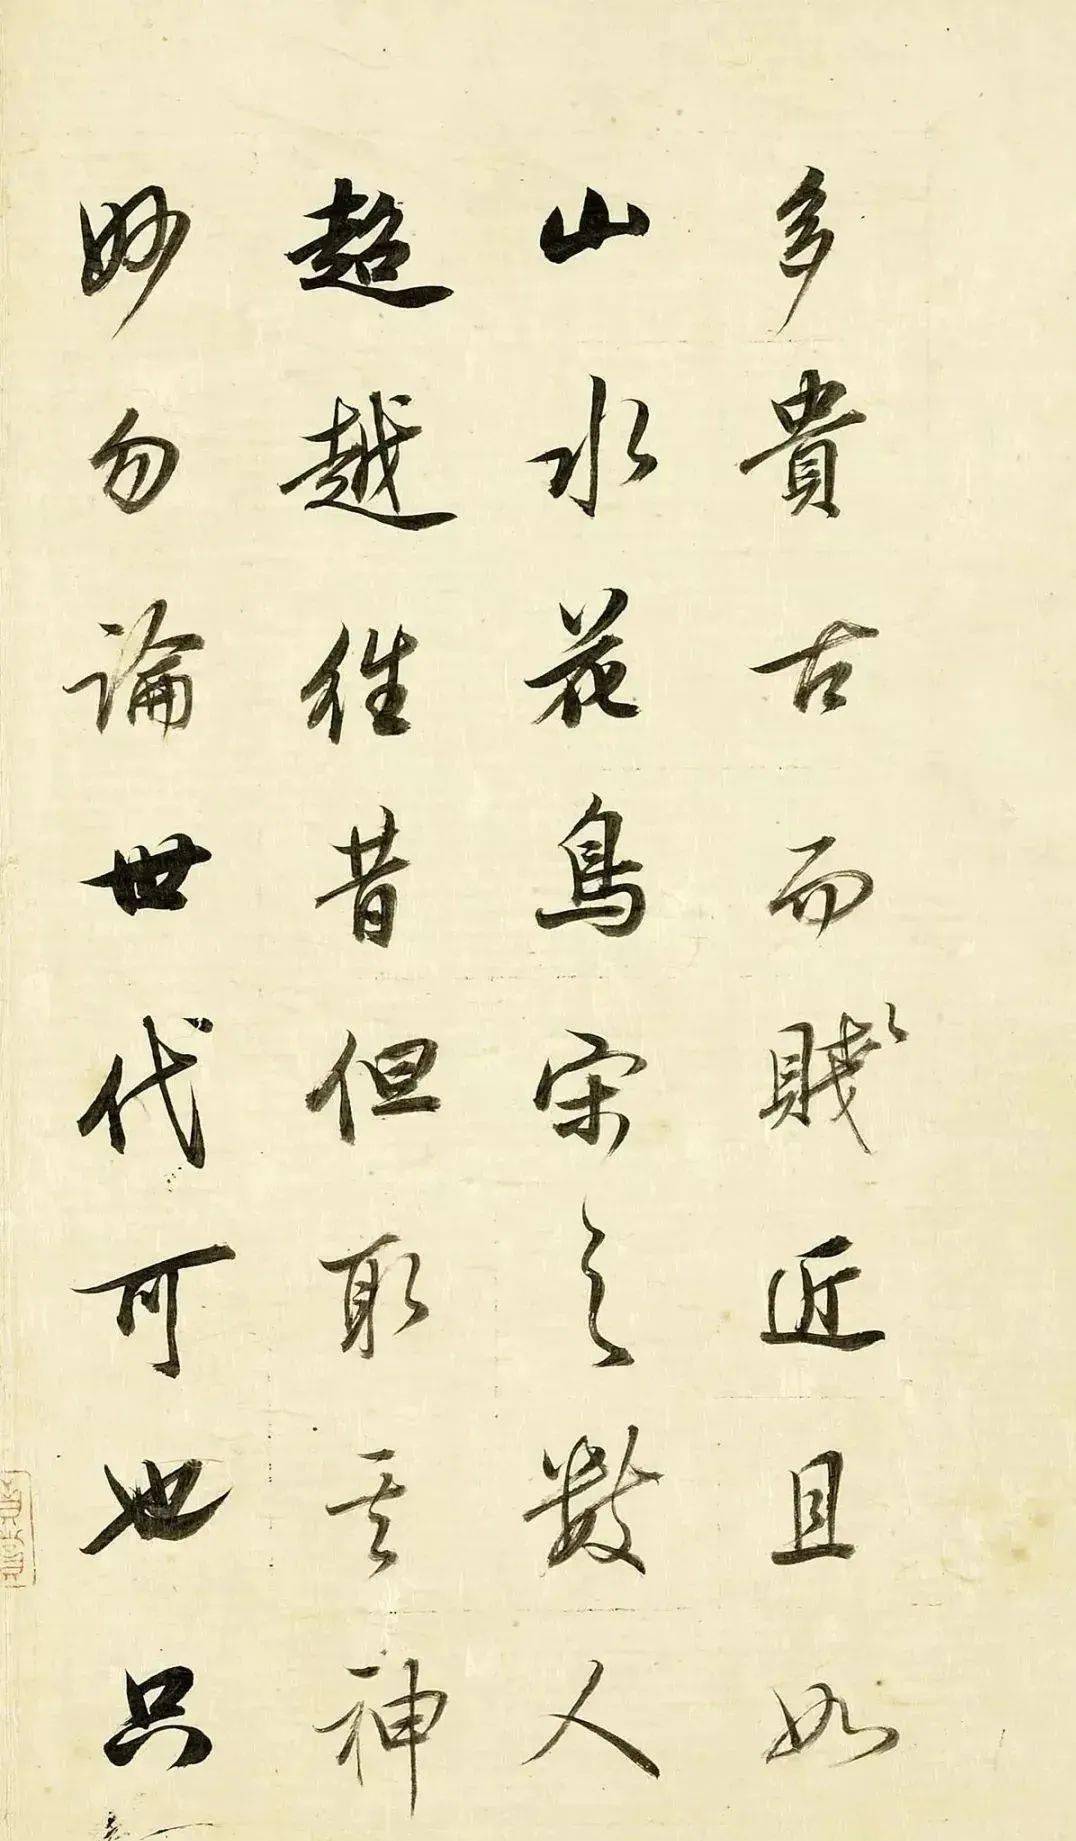 多貴古而賤近且如
山水花鳥宋之數人
超越往昔但取其神
妙勿論世代可也只